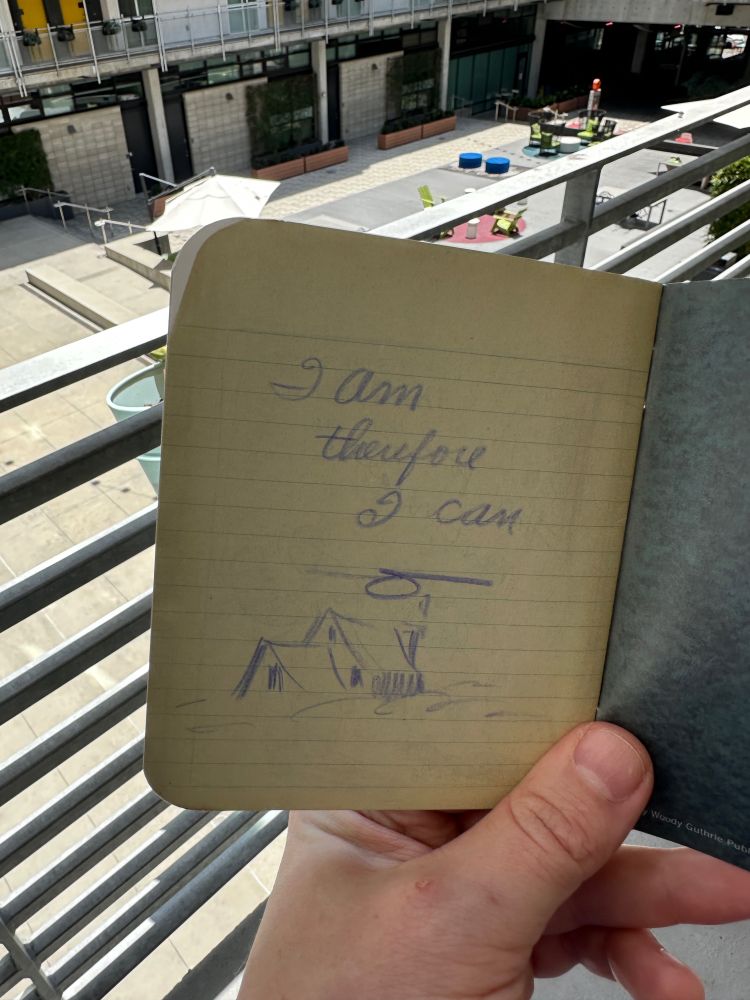 I am
therefore
I can
y Woody Guthrie Publ